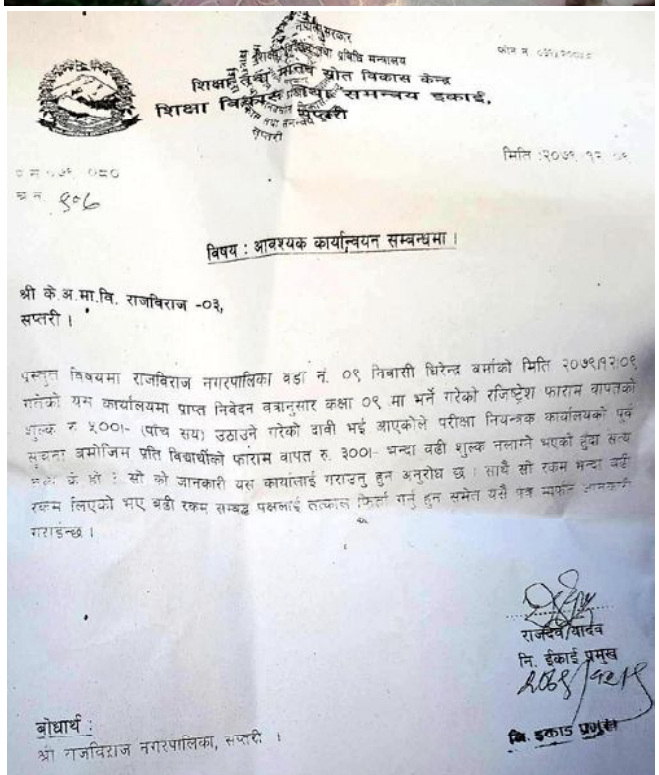 नेपाल सरकार
शिक्षा तथा मानव स्रोत विकास केन्द्र
शिक्षा विकास तथा समन्वय इकाई,
सप्तरी
सप्तरी
फोन नं
मिति :२०७९ १२ ०९
च नं ९०८
विषय : आवश्यक कार्यान्वयन सम्बन्धमा ।
श्री के.अ.मा.वि. राजविराज -०३,
सप्तरी ।
प्रस्तुत विषयमा राजविराज नगरपालिका वडा नं. ०९ निवासी धिरेन्द्र बर्माको मिति २०७९/१२/०९
गतेको यस कार्यालयमा प्राप्त निवेदन पत्रानुसार कक्षा ०९ मा भर्ने गरेको रजिष्ट्रेश फाराम वापतको
शुल्क रु ५००।- (पाँच सय) उठाउने गरेको दावी भई आएकोले परीक्षा नियन्त्रक कार्यालयको पूर्व
सूचना बमोजिम प्रति विद्यार्थीको फाराम वापत रु. ३००।- भन्दा वढी शुल्क नलाग्ने भएको हुँदा सत्य
के हो ? सो को जानकारी यस कार्यालाई गराउनु हुन अनुरोध छ । साथै सो रकम भन्दा वढी
रकम लिएको भए बढी रकम सम्बद्ध पक्षलाई तत्काल फिर्ता गर्नु हुन समेत यसै पत्र मार्फत जानकारी
गराईन्छ ।
राजदेव यादव
नि. ईकाई प्रमुख
२०७९/१२/९
नि. इकाई प्रमुख
बोधार्थ :
श्री राजविराज नगरपालिका, सप्तरी ।